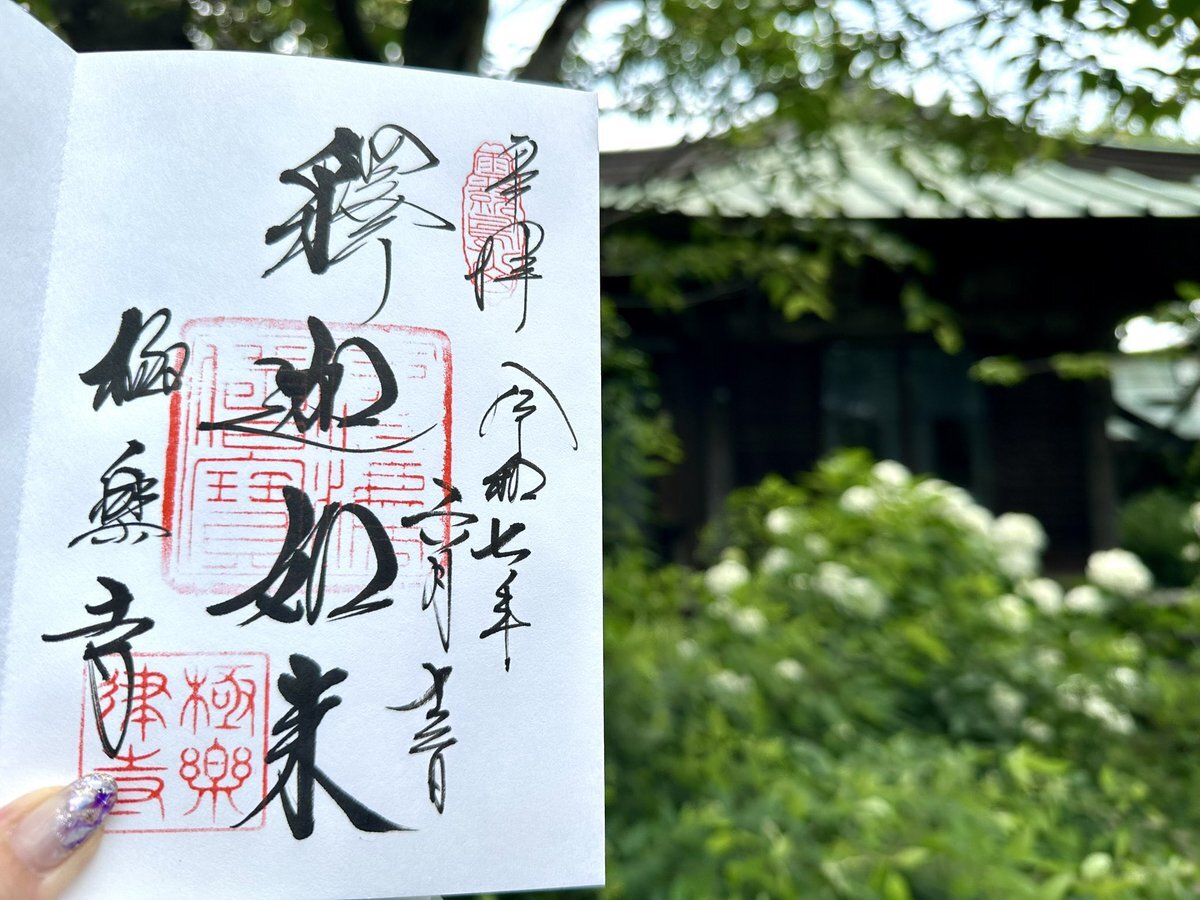 拝
令和七年
六月
釋迦如来
極樂寺
極樂
律寺